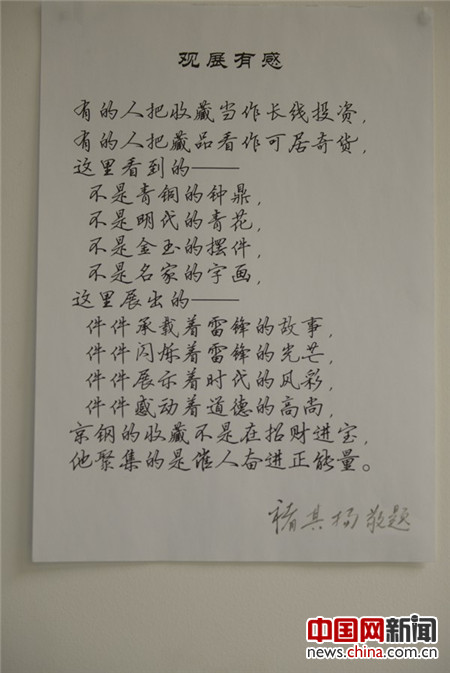 观展有感
有的人把收藏当作长线投资，
有的人把藏品看作可居奇货，
这里看到的——
不是青铜的钟鼎，
不是明代的青花，
不是金玉的摆件，
不是名家的字画，
这里展出的——
件件承载着雷锋的故事，
件件闪烁着雷锋的光芒，
件件展示着时代的风彩，
件件感动着道德的高尚，
京钢的收藏不是在招财进宝，
他聚集的是催人奋进正能量。
褚其杨敬题
中国网新闻
news.china.com.cn